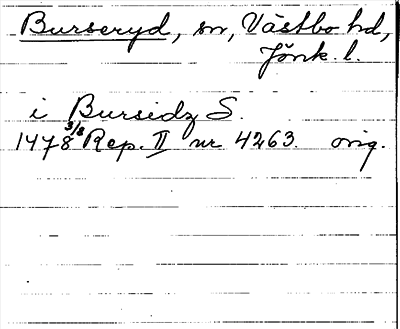 Burseryd, sn, Västbo hd,
Jönk. l.
i Bursidz S.
1478 3/8 Rep. II nr 4263. orig.